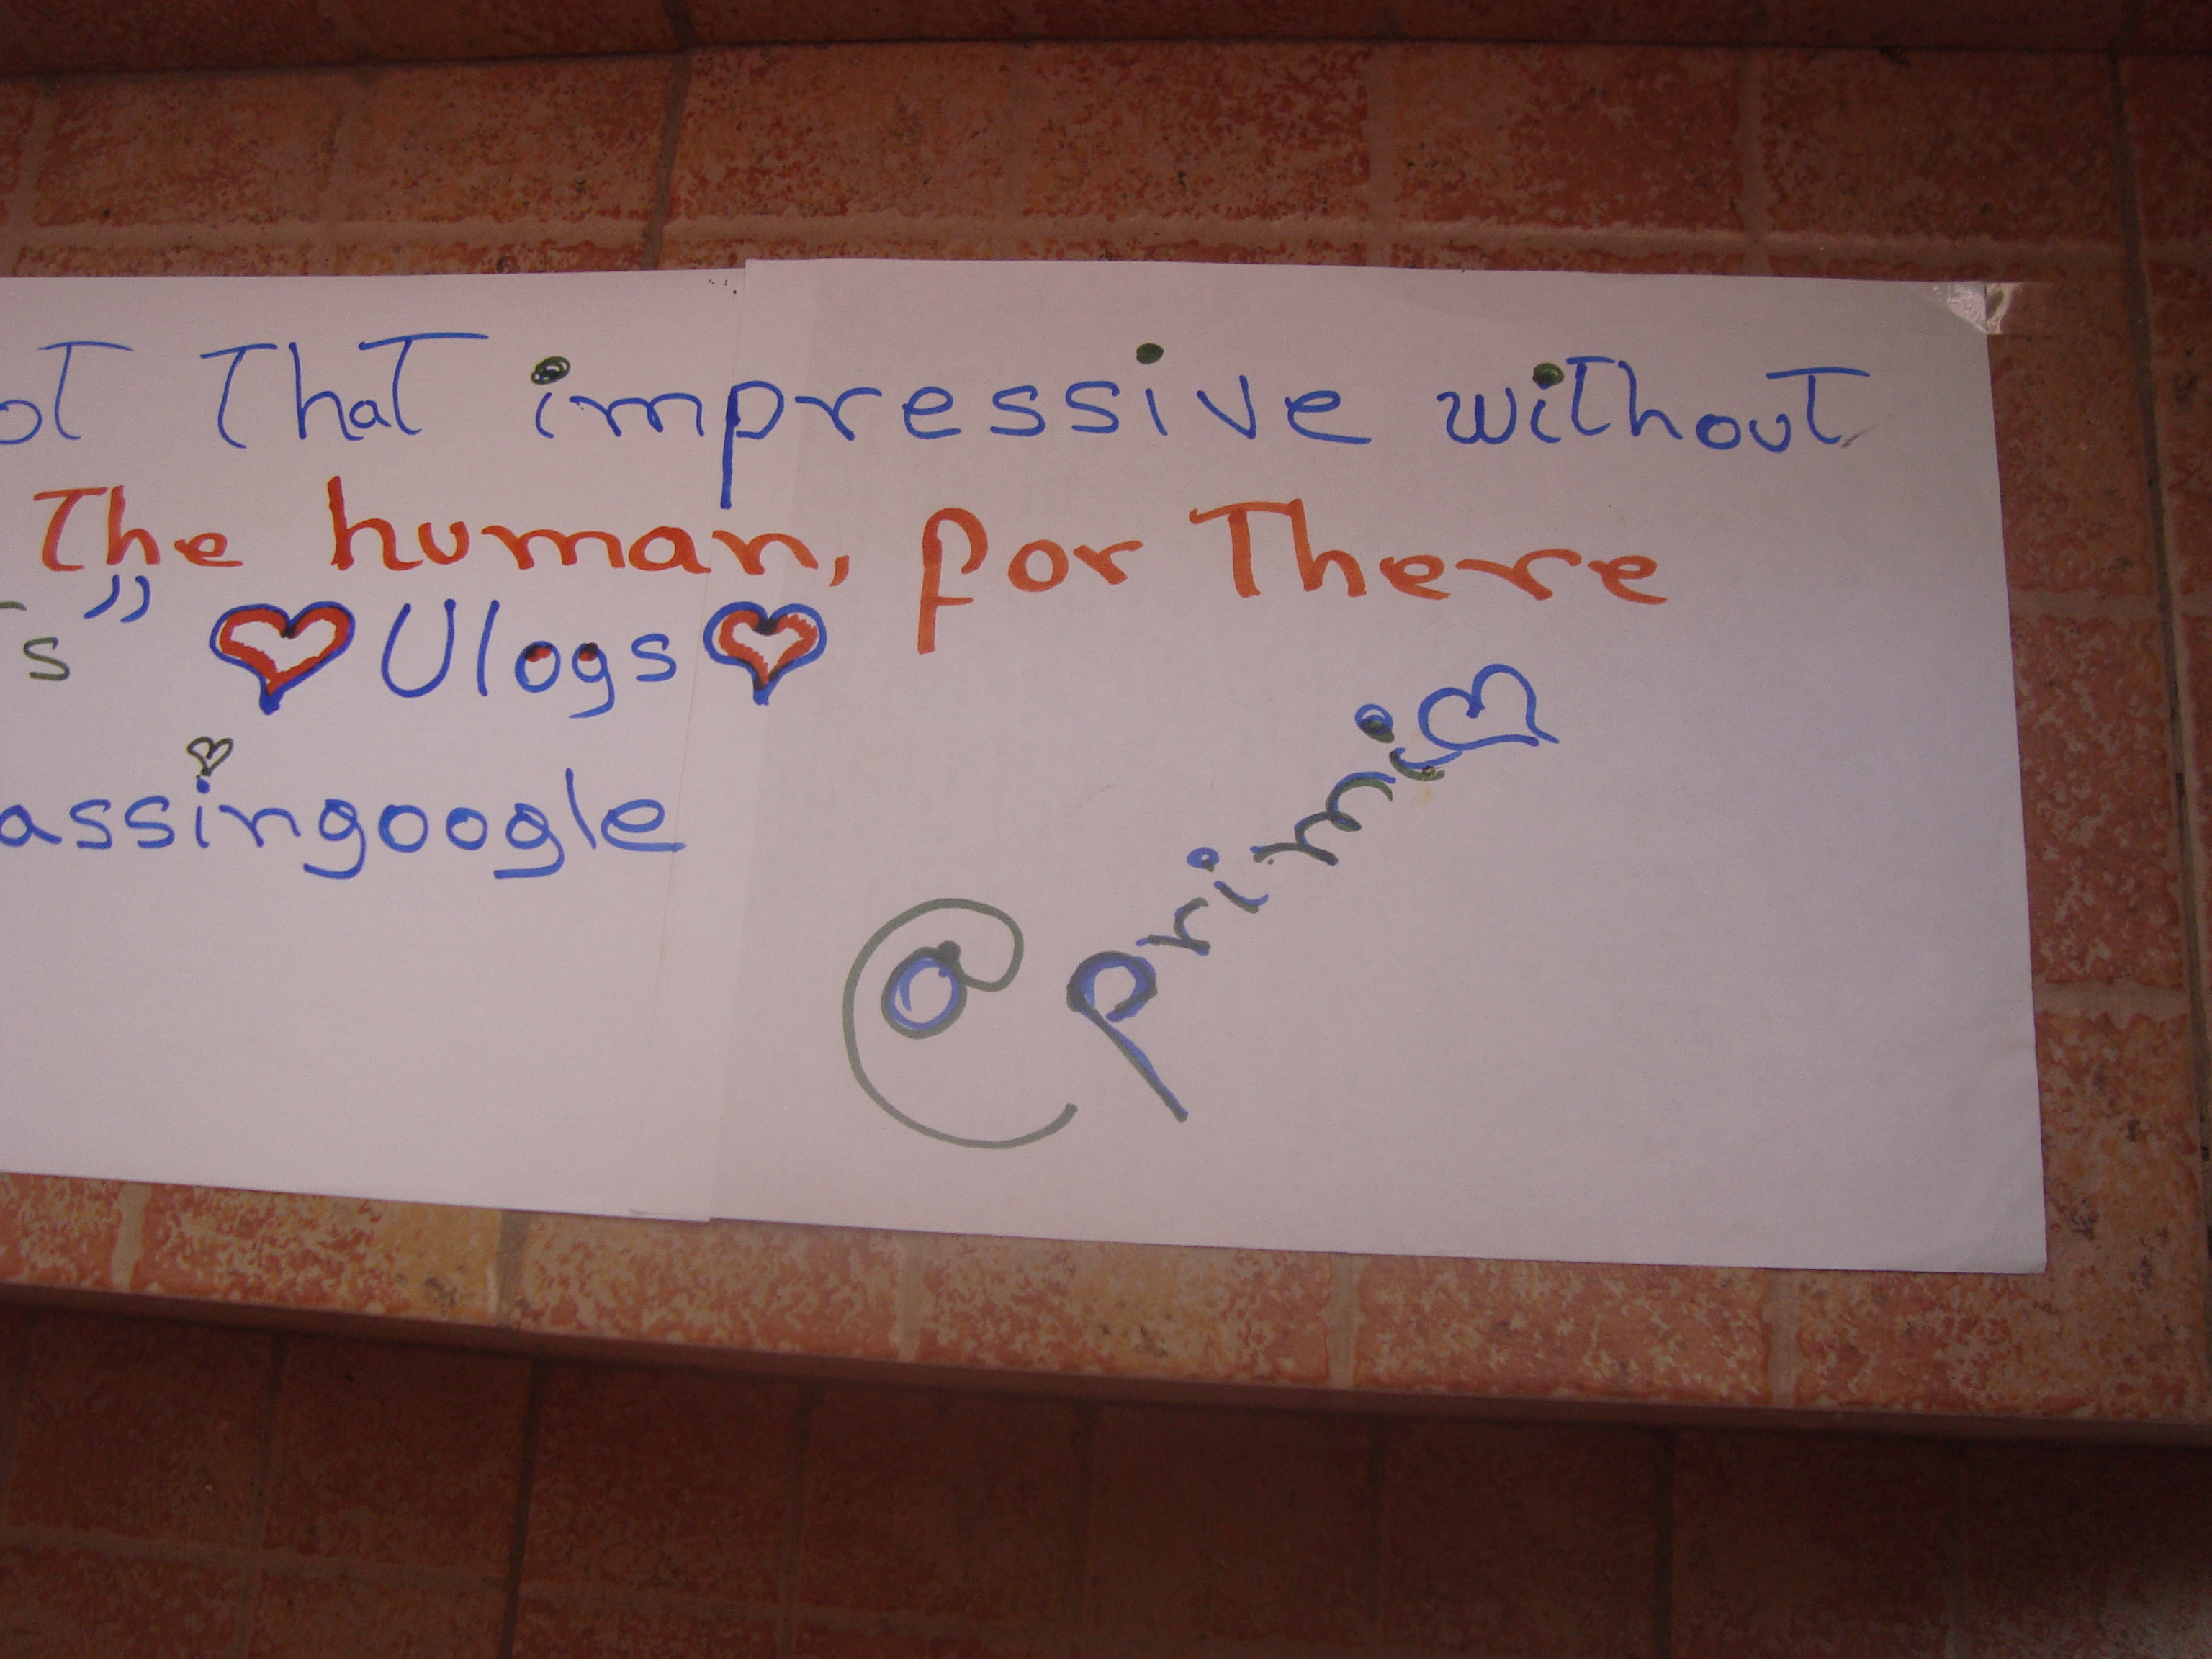 ot that impressive without
the human, for there
s" ♥ Ulogs ♥
assingoogle
@primi♡